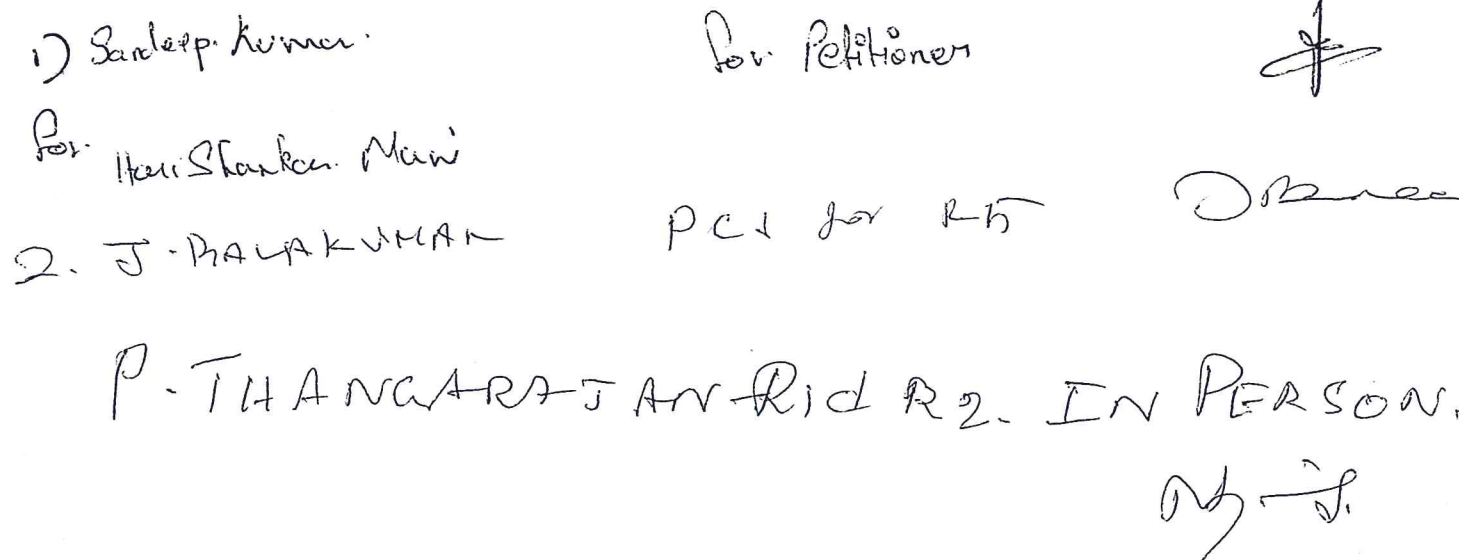 1) Sandeep. Kumar. for Petitioner
for. Hari Shankar. Mani
2. J. BALAKUMAR PCS for R5
P. THANGARAJAN R1 R2. IN PERSON.